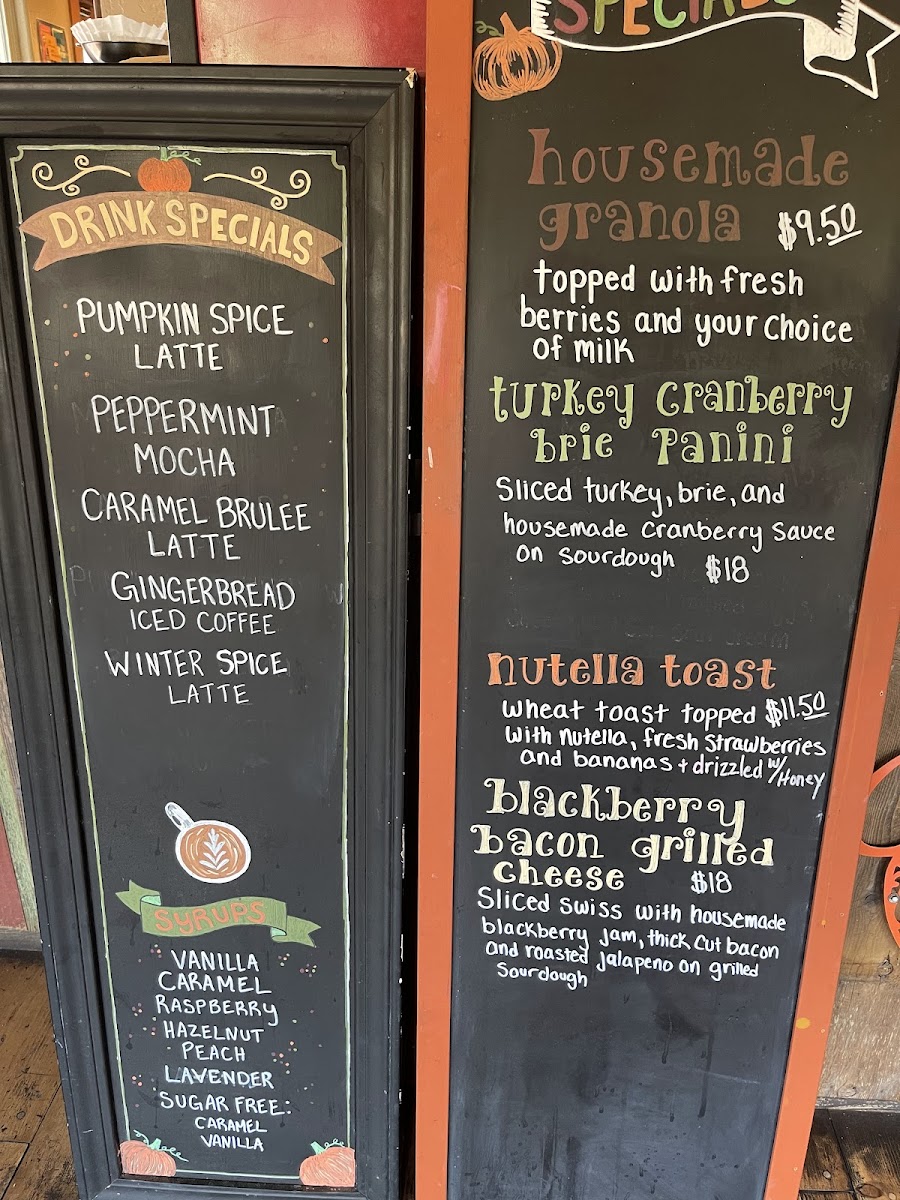 DRINK SPECIALS
PUMPKIN SPICE
LATTE
PEPPERMINT
MOCHA
CARAMEL BRULEE
LATTE
GINGERBREAD
ICED COFFEE
WINTER SPICE
LATTE
SYRUPS
VANILLA
CARAMEL
RASPBERRY
HAZELNUT
PEACH
LAVENDER
SUGAR FREE:
CARAMEL
VANILLA
SPECIALS
housemade
granola $9.50
topped with fresh
berries and your choice
of milk
turkey cranberry
brie panini
Sliced turkey, brie, and
housemade cranberry sauce
on sourdough $18
nutella toast
wheat toast topped $11.50
with nutella, fresh strawberries
and bananas + drizzled w/ Honey
blackberry
bacon grilled
cheese $18
Sliced swiss with housemade
blackberry jam, thick cut bacon
and roasted jalapeno on grilled
sourdough